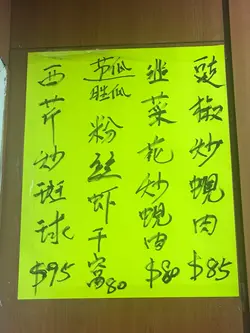 豉椒炒蜆肉$85
韭菜花炒蜆肉$80
节瓜
胜瓜
粉丝虾干窩80
西芹炒斑球$95